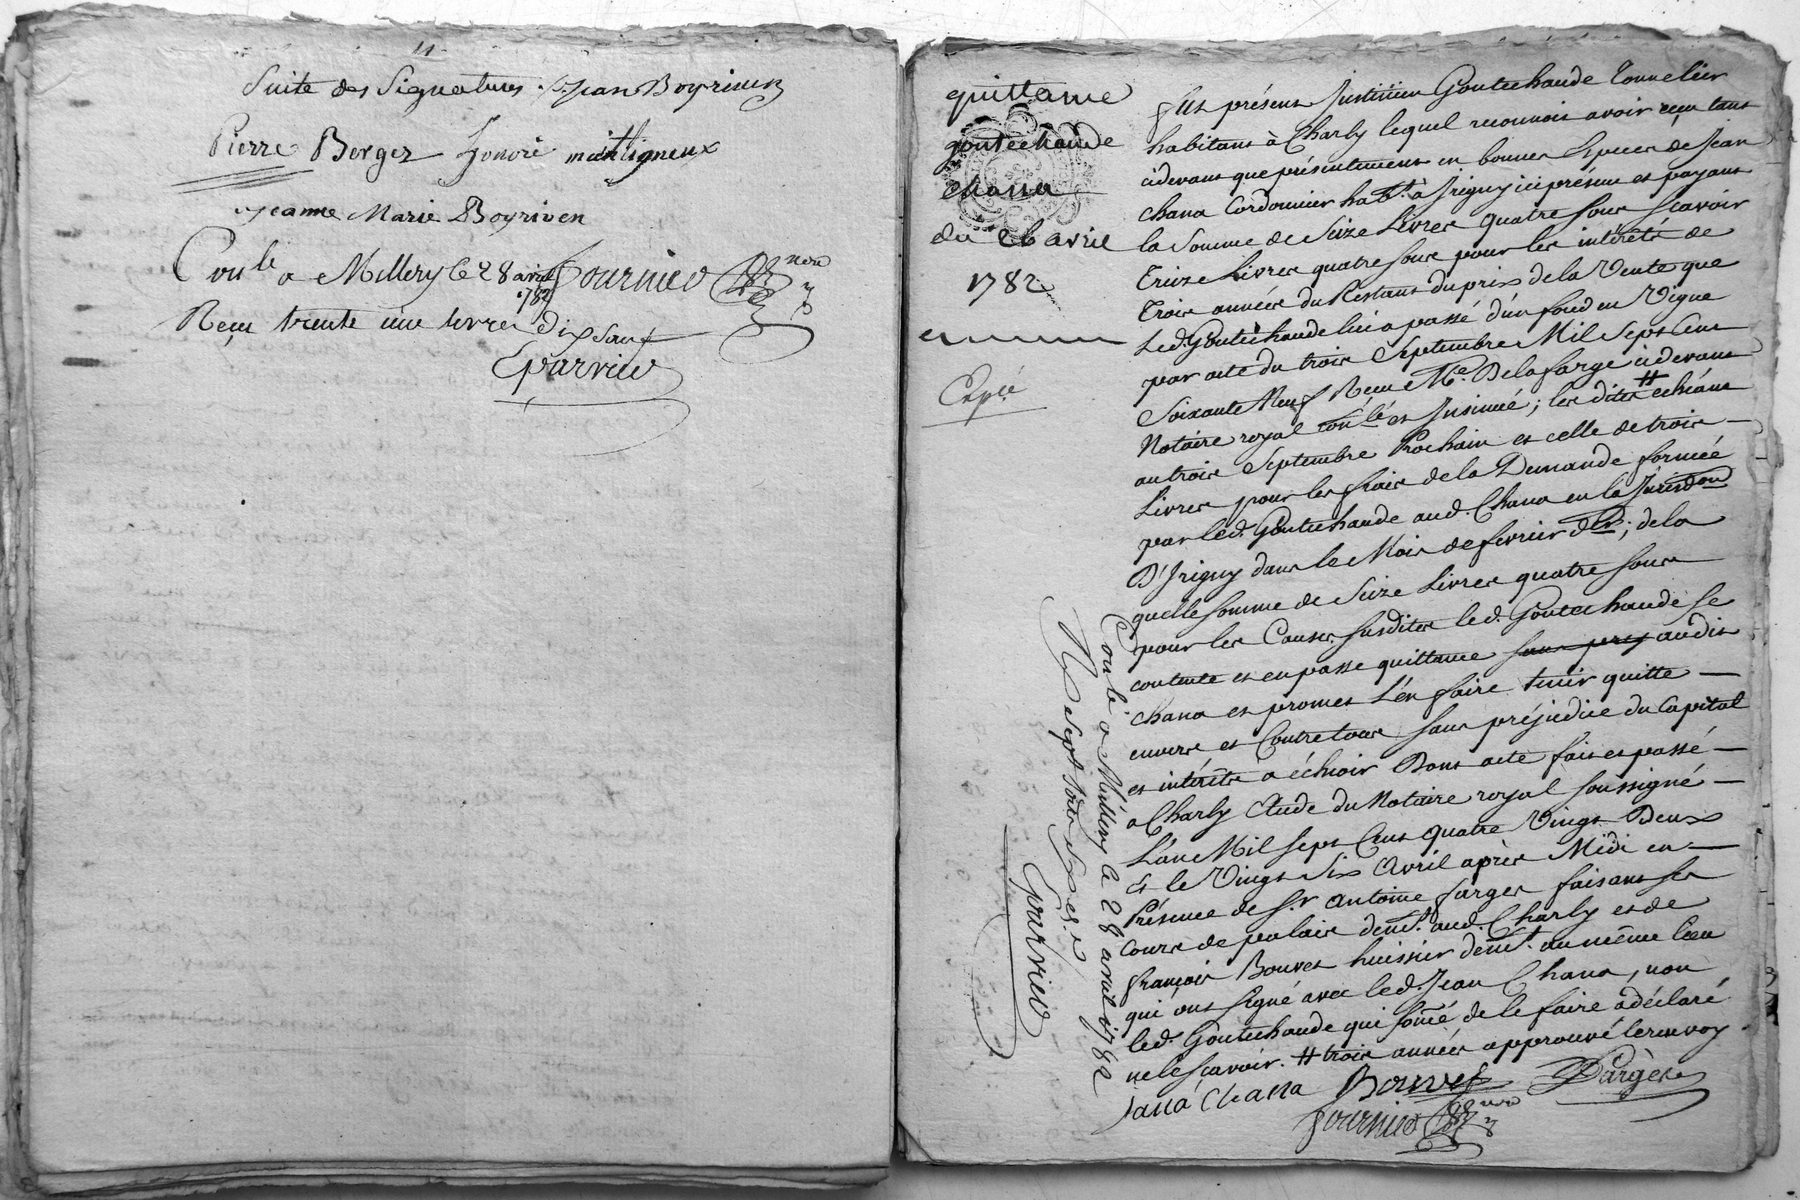 11
Suite des Signatures. Jean Boyriven
Pierre Berger honoré
Jeanne Marie Boyriven
Con.lé a Millery le 28 avril 1782 Fournier nore
Reçu trente une livres dix sous
Eparvier
quittance
goutechaude
chana
du 26 avril
1782
Expié
fut présent Goutechaude Tonnelier
habitant à Charly lequel reconnois avoir reçu tant
cidevant que présentement en bonnes Espèces de Jean
chana Cordonnier habt. à Jrigny ici présent et payant
la Somme de Seize Livres quatre Sous Scavoir
Treize Livres quatre Sous pour les intérêts de
Trois années du Restant du prix de la Vente que
Led. Goutechaude lui a passé d'un fond en Vigne
par acte du trois Septembre Mil Sept Cent
Soixante Neuf Reçu Me. Delafarge cidevant
Notaire royal con.lé et Insinué; les dites # échéant
au trois Septembre Prochain et celle de trois
Livres pour les frais de la Demande formée
par led. Goutechaude aud. Chana en la Jurisdon
D'Jrigny dans le Mois de fevrier der; de la
quelle Somme de Seize Livres quatre Sous
pour les Causes Susdites led. Goutechaude Se
contente et en passe quittance audit
chana et promet L'en faire tenir quitte
envers et Contre tous Sans préjudice du Capital
et intérêts a échoir Dont acte fait et passé
a Charly Etude du Notaire royal Soussigné
L'an Mil Sept Cent quatre Vingt Deux
Et le Vingt Six Avril après Midi en
Présence de S.r antoine farges faisant Ses
Cours de palais demt. aud. Charly et de
françois Bouvet huissier demt. au même lieu
qui ont Signé avec led. Jean Chana, non
led. Goutechaude qui Somé de le faire a déclaré
ne le Scavoir. # trois années approuvé le renvoy
Chana Bouvet Dargere
Fournier nore
Con.lé a Millery le 28 avril 1782
R. Sept Sous
Eparvier